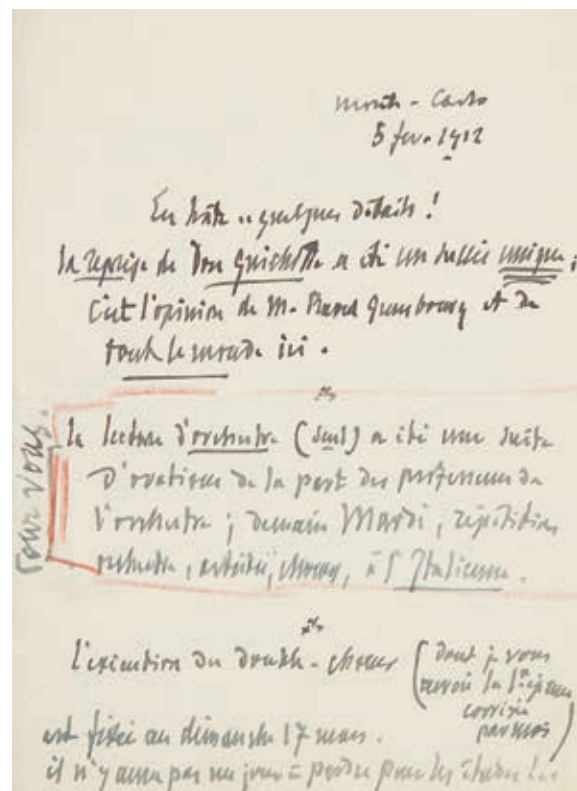 Monte-Carlo
5 fev. 1912
En hâte .. quelques détails !
la reprise de Don Quichotte a été un succès unique ;
c'est l'opinion de M. Raoul Gunsbourg et de
tout le monde ici.
Pour vous.
la lecture d'orchestre (seul) a été une suite
d'ovations de la part des professeurs de
l'orchestre ; demain Mardi, répétition
orchestre, artistes, chœurs, à l'Italienne.
l'exécution du double-chœur (dont je vous
renvoie la 1ère épreuve
corrigée
par moi)
est fixée au dimanche 17 mars.
il n'y aura pas un jour à perdre pour les études